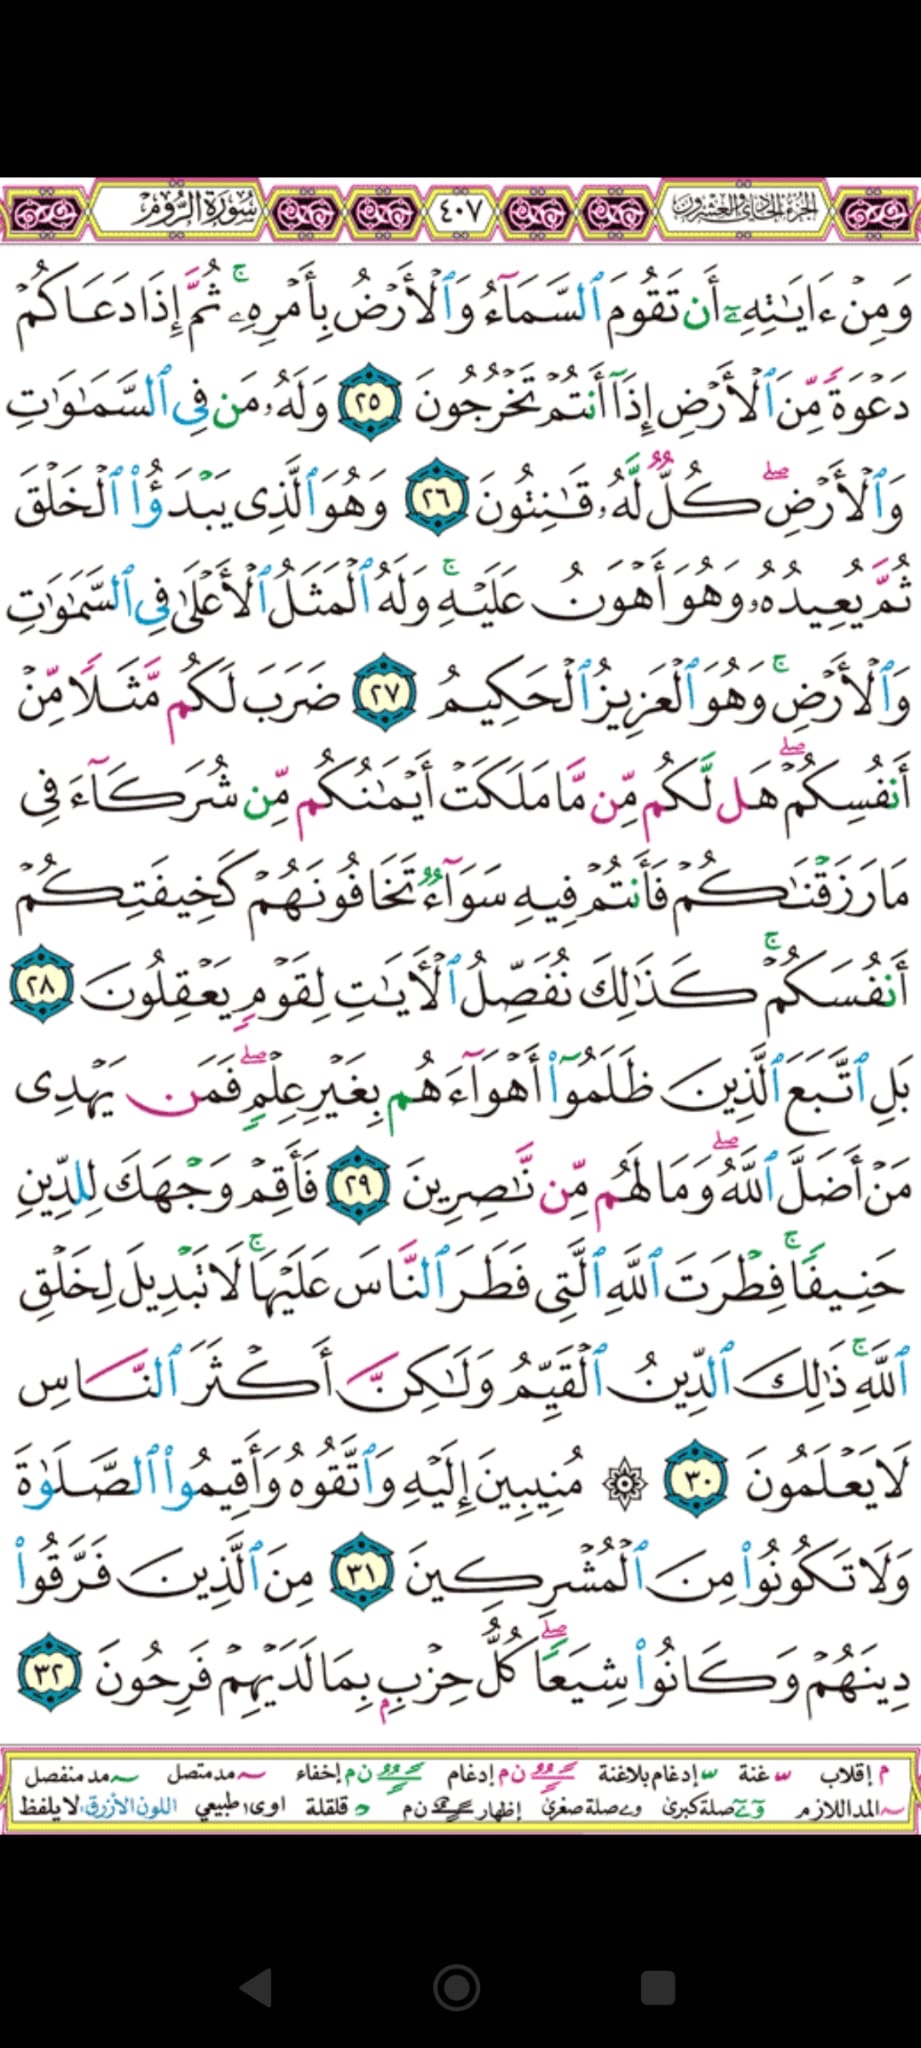 الجزء الحادي والعشرون ٤٠٧ سورة الروم
وَمِنْ ءَايَـٰتِهِۦٓ أَن تَقُومَ ٱلسَّمَآءُ وَٱلْأَرْضُ بِأَمْرِهِۦ ۚ ثُمَّ إِذَا دَعَاكُمْ
دَعْوَةً مِّنَ ٱلْأَرْضِ إِذَآ أَنتُمْ تَخْرُجُونَ ٢٥ وَلَهُۥ مَن فِى ٱلسَّمَـٰوَٰتِ
وَٱلْأَرْضِ ۖ كُلٌّ لَّهُۥ قَـٰنِتُونَ ٢٦ وَهُوَ ٱلَّذِى يَبْدَؤُا۟ ٱلْخَلْقَ
ثُمَّ يُعِيدُهُۥ وَهُوَ أَهْوَنُ عَلَيْهِ ۚ وَلَهُ ٱلْمَثَلُ ٱلْأَعْلَىٰ فِى ٱلسَّمَـٰوَٰتِ
وَٱلْأَرْضِ ۚ وَهُوَ ٱلْعَزِيزُ ٱلْحَكِيمُ ٢٧ ضَرَبَ لَكُم مَّثَلًا مِّنْ
أَنفُسِكُمْ ۖ هَل لَّكُم مِّن مَّا مَلَكَتْ أَيْمَـٰنُكُم مِّن شُرَكَآءَ فِى
مَا رَزَقْنَـٰكُمْ فَأَنتُمْ فِيهِ سَوَآءٌ تَخَافُونَهُمْ كَخِيفَتِكُمْ
أَنفُسَكُمْ ۚ كَذَٰلِكَ نُفَصِّلُ ٱلْـَٔايَـٰتِ لِقَوْمٍ يَعْقِلُونَ ٢٨
بَلِ ٱتَّبَعَ ٱلَّذِينَ ظَلَمُوٓا۟ أَهْوَآءَهُم بِغَيْرِ عِلْمٍ ۖ فَمَن يَهْدِى
مَنْ أَضَلَّ ٱللَّهُ ۖ وَمَا لَهُم مِّن نَّـٰصِرِينَ ٢٩ فَأَقِمْ وَجْهَكَ لِلدِّينِ
حَنِيفًا ۚ فِطْرَتَ ٱللَّهِ ٱلَّتِى فَطَرَ ٱلنَّاسَ عَلَيْهَا ۚ لَا تَبْدِيلَ لِخَلْقِ
ٱللَّهِ ۚ ذَٰلِكَ ٱلدِّينُ ٱلْقَيِّمُ وَلَـٰكِنَّ أَكْثَرَ ٱلنَّاسِ
لَا يَعْلَمُونَ ٣٠ ۞ مُنِيبِينَ إِلَيْهِ وَٱتَّقُوهُ وَأَقِيمُوا۟ ٱلصَّلَوٰةَ
وَلَا تَكُونُوا۟ مِنَ ٱلْمُشْرِكِينَ ٣١ مِنَ ٱلَّذِينَ فَرَّقُوا۟
دِينَهُمْ وَكَانُوا۟ شِيَعًا ۖ كُلُّ حِزْبٍۭ بِمَا لَدَيْهِمْ فَرِحُونَ ٣٢
م إقلاب غنة إدغام بلاغنة ن م إدغام ن م إخفاء مد متصل مد منفصل
المد اللازم صلة كبرى صلة صغرى إظهار ن م قلقلة اوى طبيعي اللون الأزرق: لا يلفظ